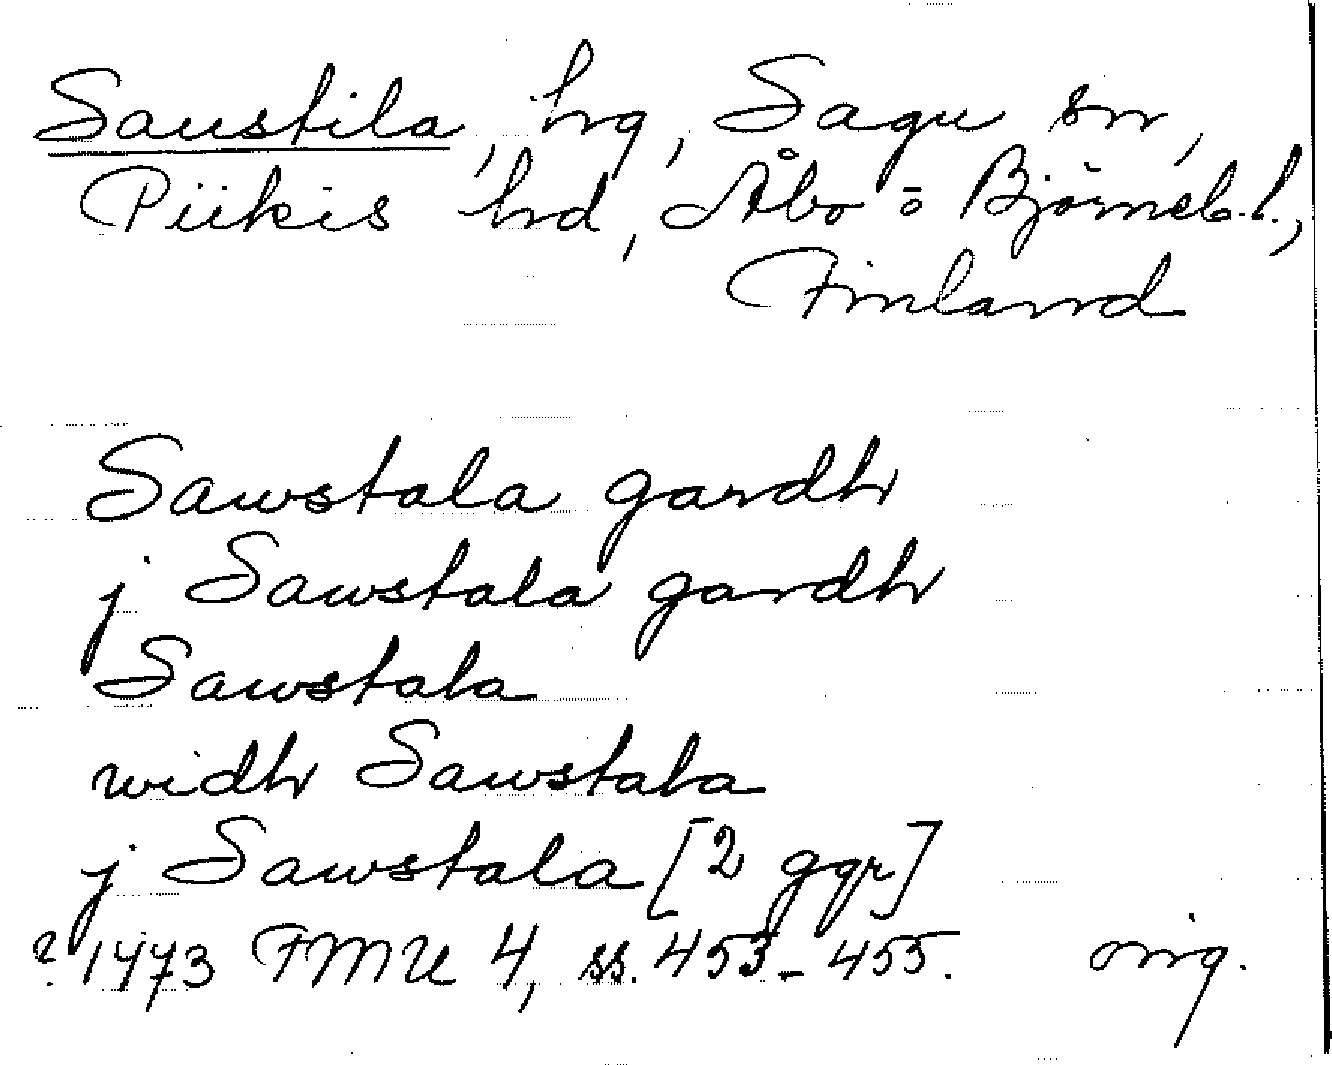 Saustila, hrg, Sagu sn,
Piikis hrd, Åbo o Björneb. l.,
Finland
Sawstala gardh
j Sawstala gardh
Sawstala
widh Sawstala
j Sawstala [2 ggr]
? 1473 FMU 4, ss. 453-455. orig.